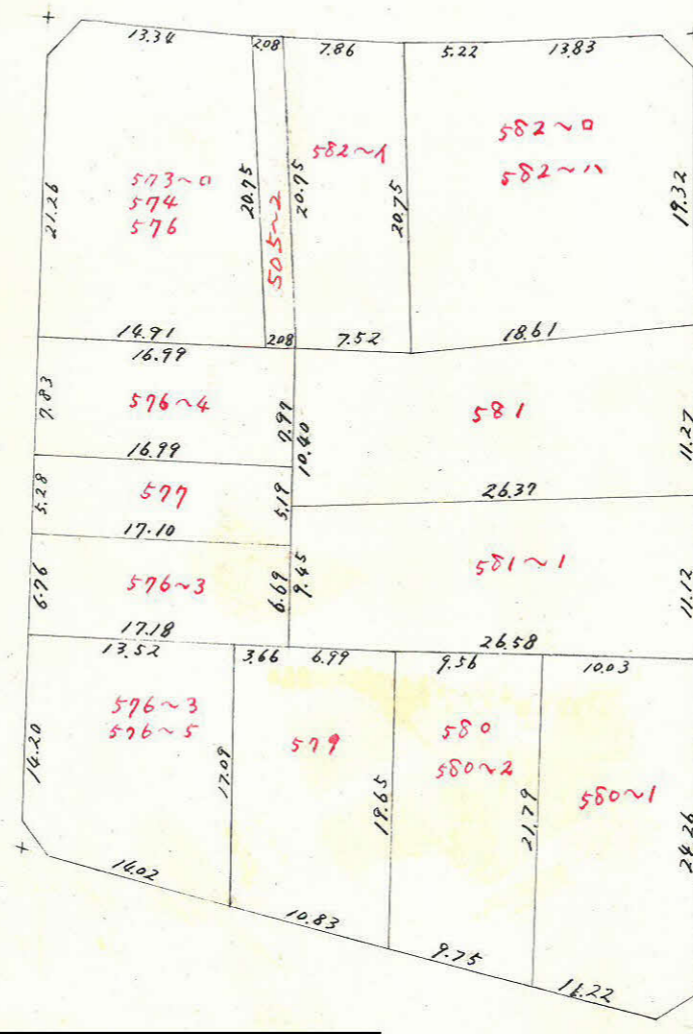 13.34
2.08
7.86
5.22
13.83
582~ロ
582~ハ
582~イ
573~ロ
574
576
21.26
20.75
505~2
20.75
20.75
19.32
14.91
2.08
7.52
18.61
16.99
7.83
576~4
7.97
10.40
581
11.27
16.99
5.28
577
5.19
26.37
17.10
6.76
576~3
6.69
9.45
581~1
11.12
17.18
26.58
13.52
3.66
6.99
9.56
10.03
576~3
576~5
14.20
17.09
579
19.65
580
580~2
21.79
580~1
24.26
14.02
10.83
9.75
11.22